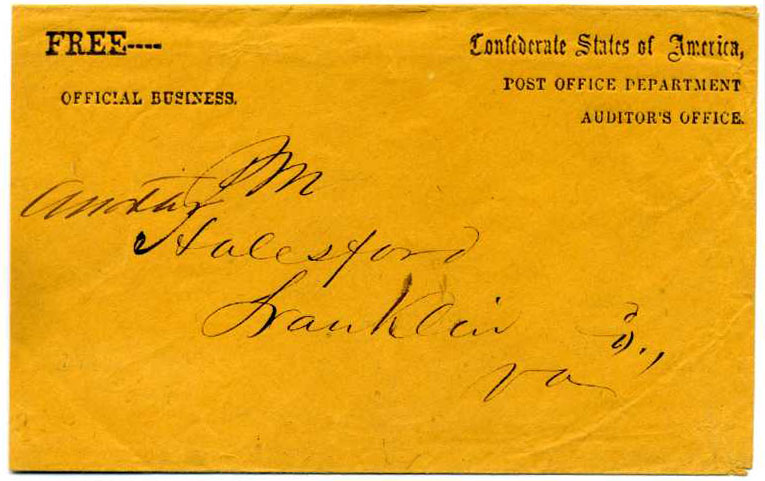 FREE----
Confederate States of America,
OFFICIAL BUSINESS.
POST OFFICE DEPARTMENT
AUDITOR'S OFFICE.
P M
Halesford
Franklin Co.,
Va